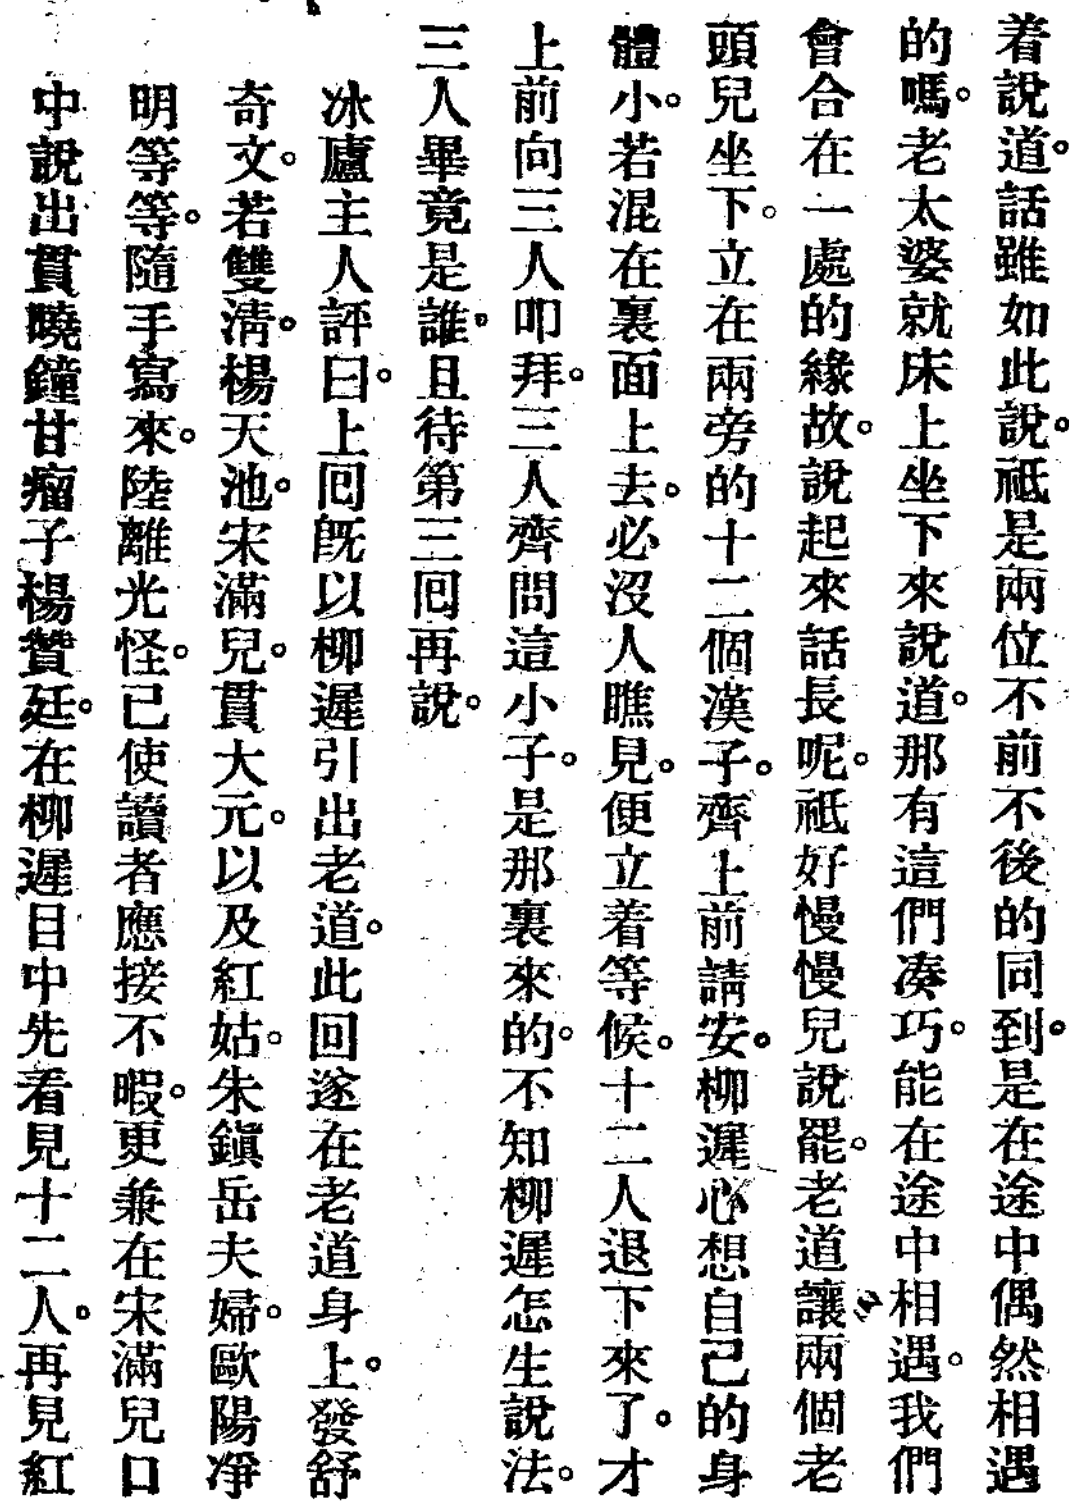 着說道。話雖如此說。祗是兩位不前不後的同到。是在途中偶然相遇
的嗎。老太婆就床上坐下來說道。那有這們凑巧。能在途中相遇。我們
會合在一處的緣故。說起來話長呢。祗好慢慢兒說罷。老道讓兩個老
頭兒坐下。立在兩旁的十二個漢子。齊上前請安。柳遲心想自己的身
體小。若混在裏面上去。必沒人瞧見。便立着等候。十二人退下來了。才
上前向三人叩拜。三人齊問這小子。是那裏來的。不知柳遲怎生說法。
三人畢竟是誰。且待第三囘再說。
冰廬主人評曰。上囘既以柳遲引出老道。此回遂在老道身上。發舒
奇文。若雙清。楊天池。宋滿兒。貫大元。以及紅姑。朱鎭岳夫婦。歐陽凈
明等等。隨手寫來。陸離光怪。已使讀者應接不暇。更兼在宋滿兒口
中說出貫曉鐘甘瘤子楊贊廷。在柳遲目中先看見十二人。再見紅